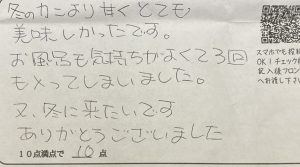 冬のカニより甘くとても
美味しかったです。
お風呂も気持ちがよくて3回
も入ってしまいました。
又、冬に来たいです
ありがとうございました
10点満点で 10 点
スマホでも投
OK!チェック
記入後フロン
へお渡し下さい